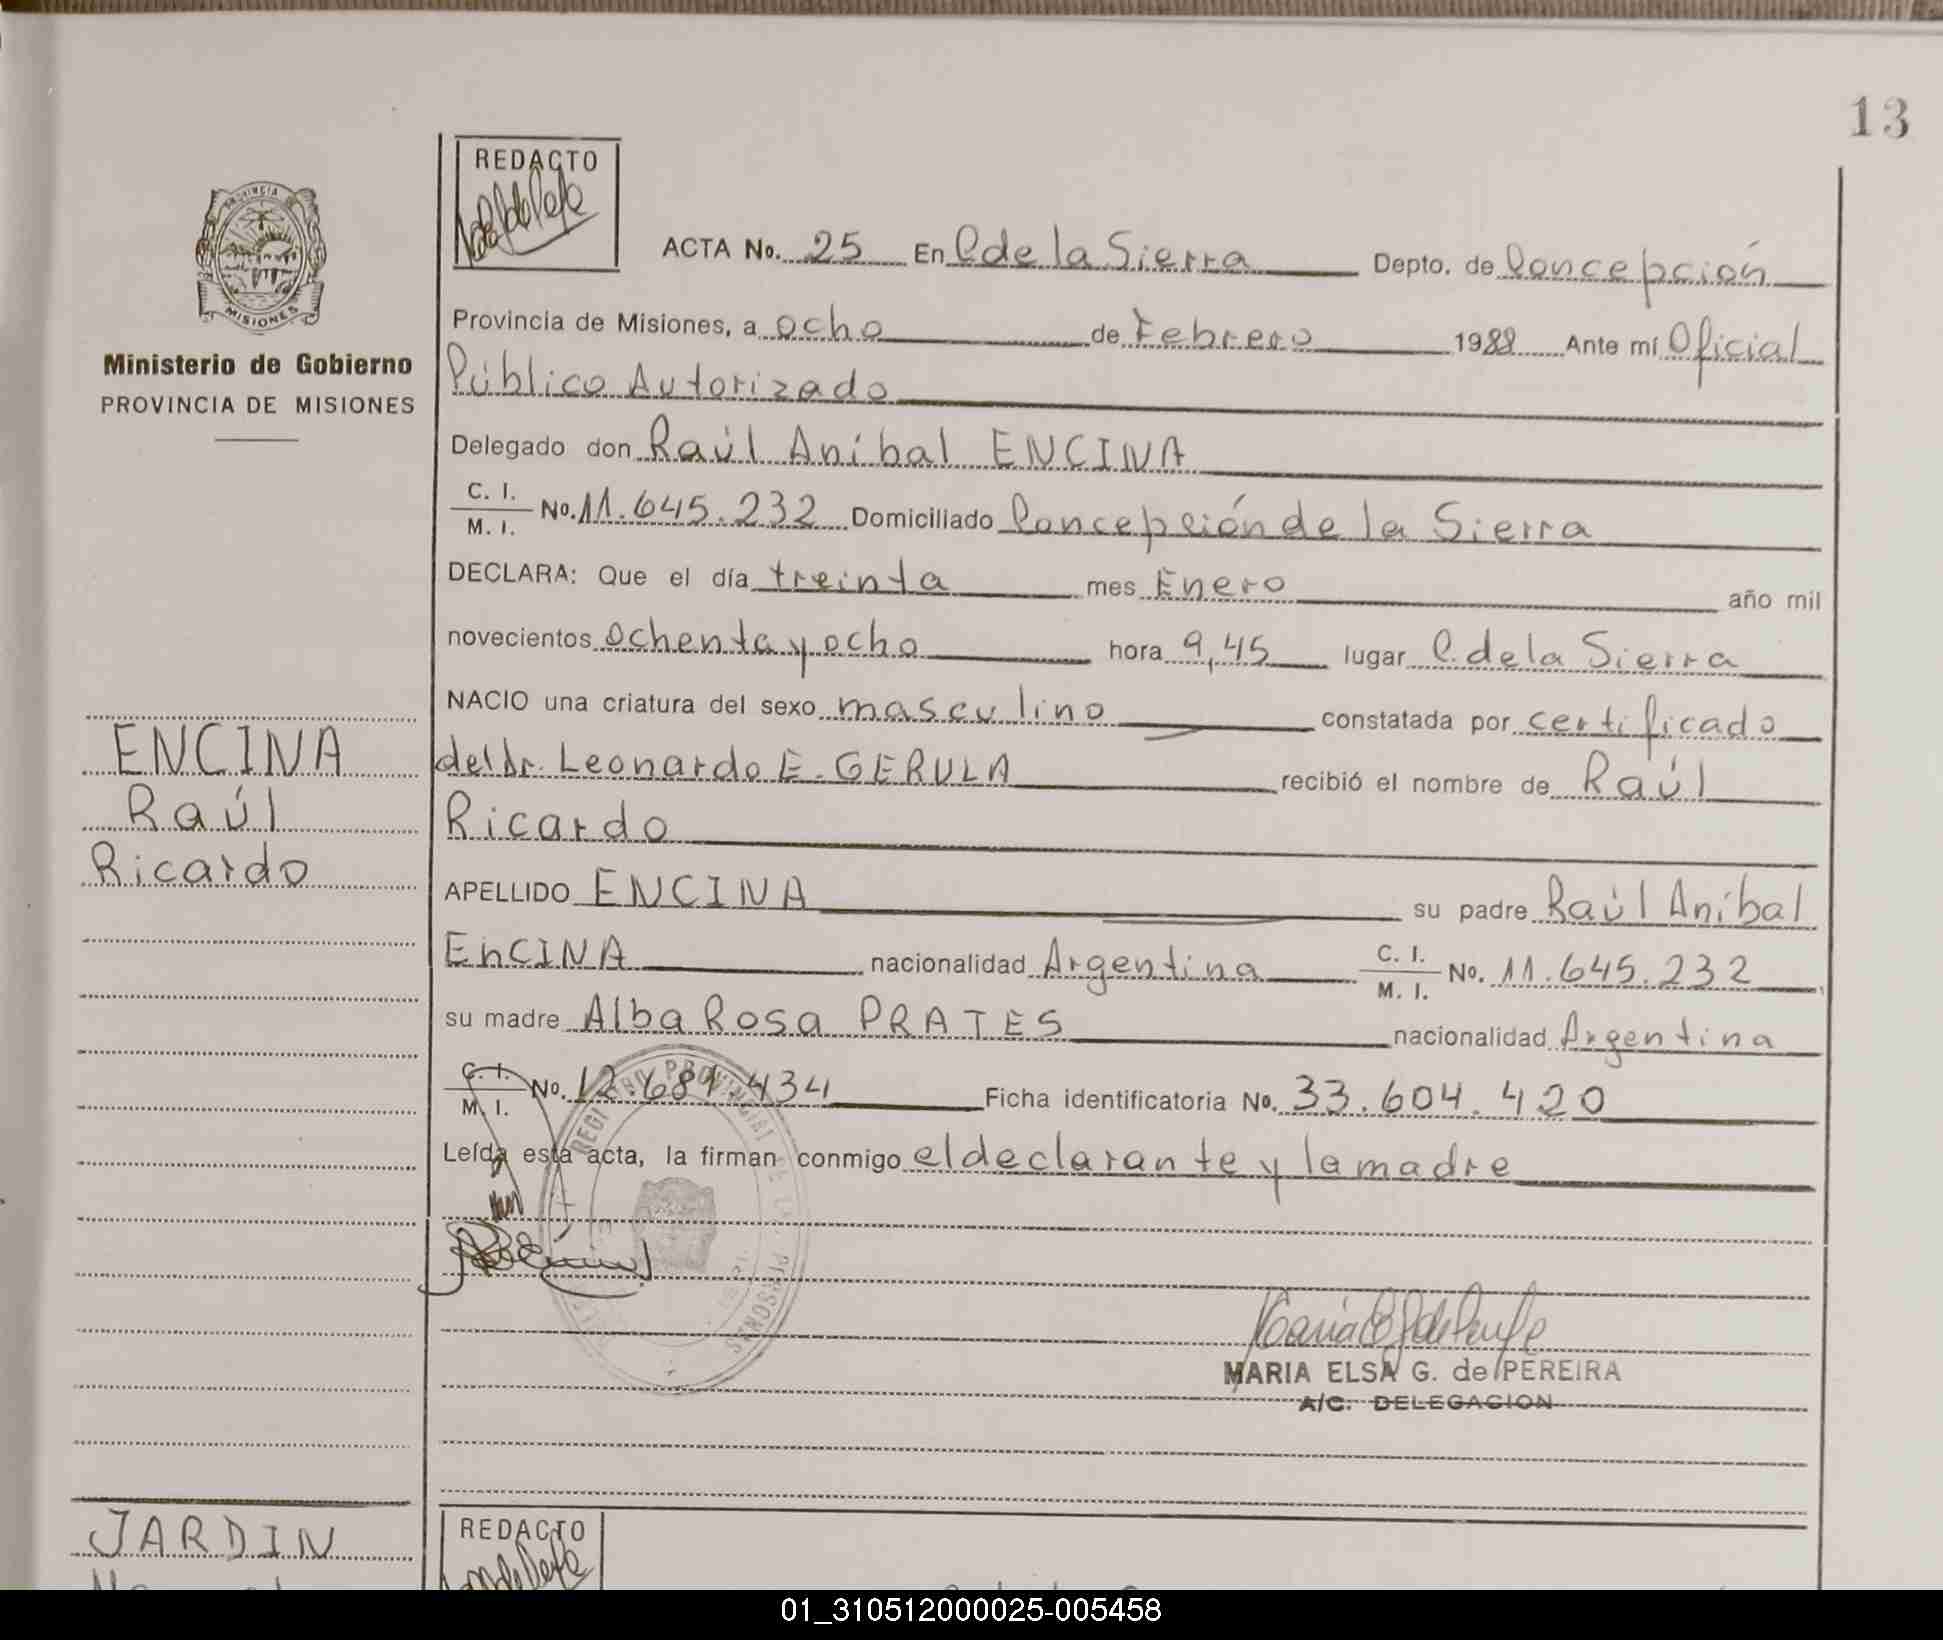 13
REDACTO
ACTA No. 25 En C de la Sierra Depto. de Concepción
PROVINCIA DE
MISIONES
Ministerio de Gobierno
PROVINCIA DE MISIONES
Provincia de Misiones, a ocho de Febrero 1988 Ante mí Oficial
Público Autorizado
Delegado don Raúl Aníbal ENCINA
C. I.
M. I. No. 11.645.232 Domiciliado Concepción de la Sierra
DECLARA: Que el día treinta mes Enero año mil
novecientos ochenta y ocho hora 9,45 lugar C. de la Sierra
NACIO una criatura del sexo masculino constatada por certificado
del Dr. Leonardo E. GERULA recibió el nombre de Raúl
Ricardo
ENCINA
Raúl
Ricardo
APELLIDO ENCINA su padre Raúl Aníbal
EnCINA nacionalidad Argentina C. I.
M. I. No. 11.645.232
su madre Alba Rosa PRATES nacionalidad Argentina
C. I.
M. I. No. 12.681.434 Ficha identificatoria No. 33.604.420
Leída esta acta, la firman conmigo el declarante y la madre
REGISTRO PROVINCIAL DE LAS PERSONAS
MARIA ELSA G. de PEREIRA
A/C. DELEGACION
JARDIN
REDACTO
01_310512000025-005458